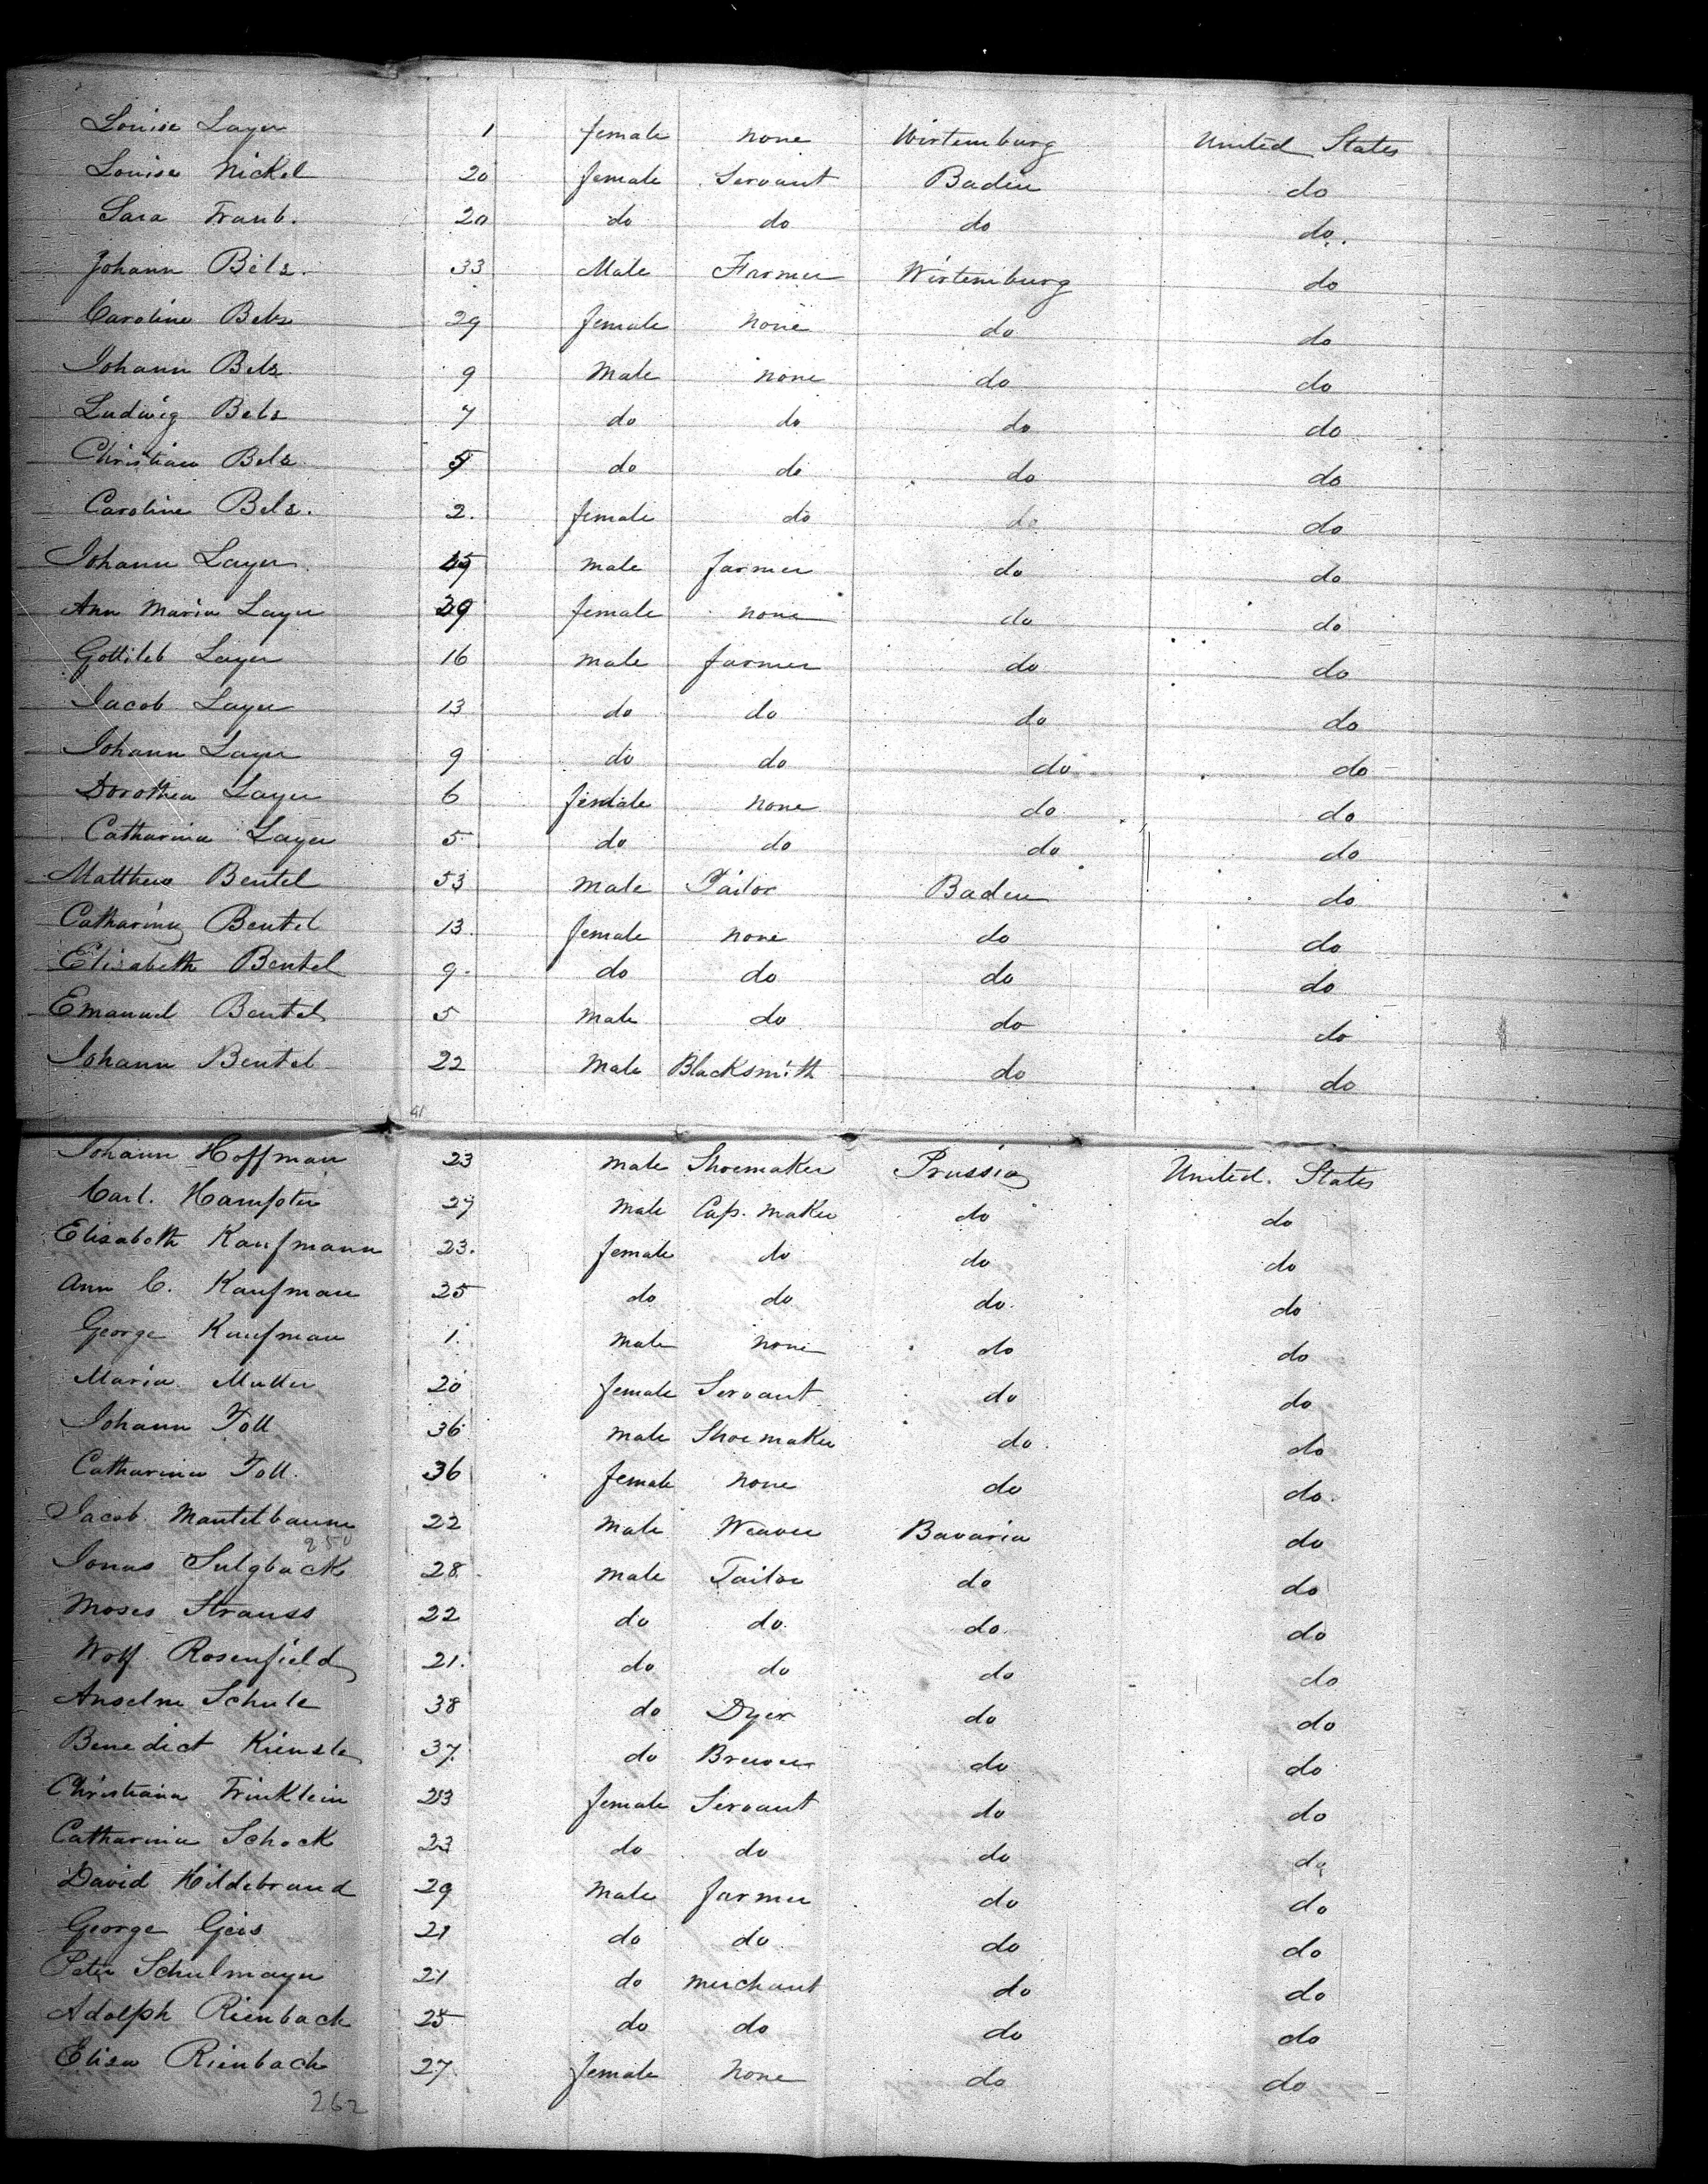 Louise Layer 1 female none Wirtemburg United States
Louise Nickel 20 female Servant Baden do
Sara Traub. 20 do do do do.
Johann Bels. 33 Male Farmer Wirtemburg do
Caroline Bels 29 female none do do
Johann Bels 9 Male none do do
Ludwig Bels 7 do do do do
Christian Bels 5 do do do do
Caroline Bels. 2. female do do do
Johann Layer. male farmer do do
Ann Maria Layer 39 female none do do
Gottileb Layer 16 male farmer do do
Jacob Layer 13 do do do do
Johann Layer 9 do do do do
Dorothea Layer 6 female none do do
Catharina Layer 5 do do do do
Matthew Bentel 53 Male Tailor Baden do
Catharina Bentel 13. female none do do
Elisabeth Bentel 9. do do do do
Emanuel Bentel 5 Male do do do
Johann Bentel 22 Male Blacksmith do do
41
Johann Hoffman 23 Male Shoemaker Prussia United. States
Carl. Hampter 29 Male Cap. maker do do
Elisabeth Kaufmann 23. female do do do
Ann C. Kaufman 25 do do do. do
George Kaufman 1. Male none do do
Maria Muller 20 female Servant do do
Johann Toll 36 Male Shoemaker do. do
Catharina Toll. 36 female none do do.
Jacob Mantelbaum 22 Male Weaver Bavaria do
250
Jonas Sulgback 28 Male Tailor do do
Moses Strauss 22 do do. do do
Wolf Rosenfield 21. do do do do
Anselm Schule 38 do Dyer do do
Benedict Kiensle 37. do Brewer do do
Christiana Trinklein 23 female Servant do do
Catharina Schock 23 do do do do
David Hildebrand 29 Male farmer do do
George Geis 21 do do do do
Peter Schulmayer 21 do merchant do do
Adolph Rienback 25 do do do do
Elisa Rienbach 27. female none do do
262